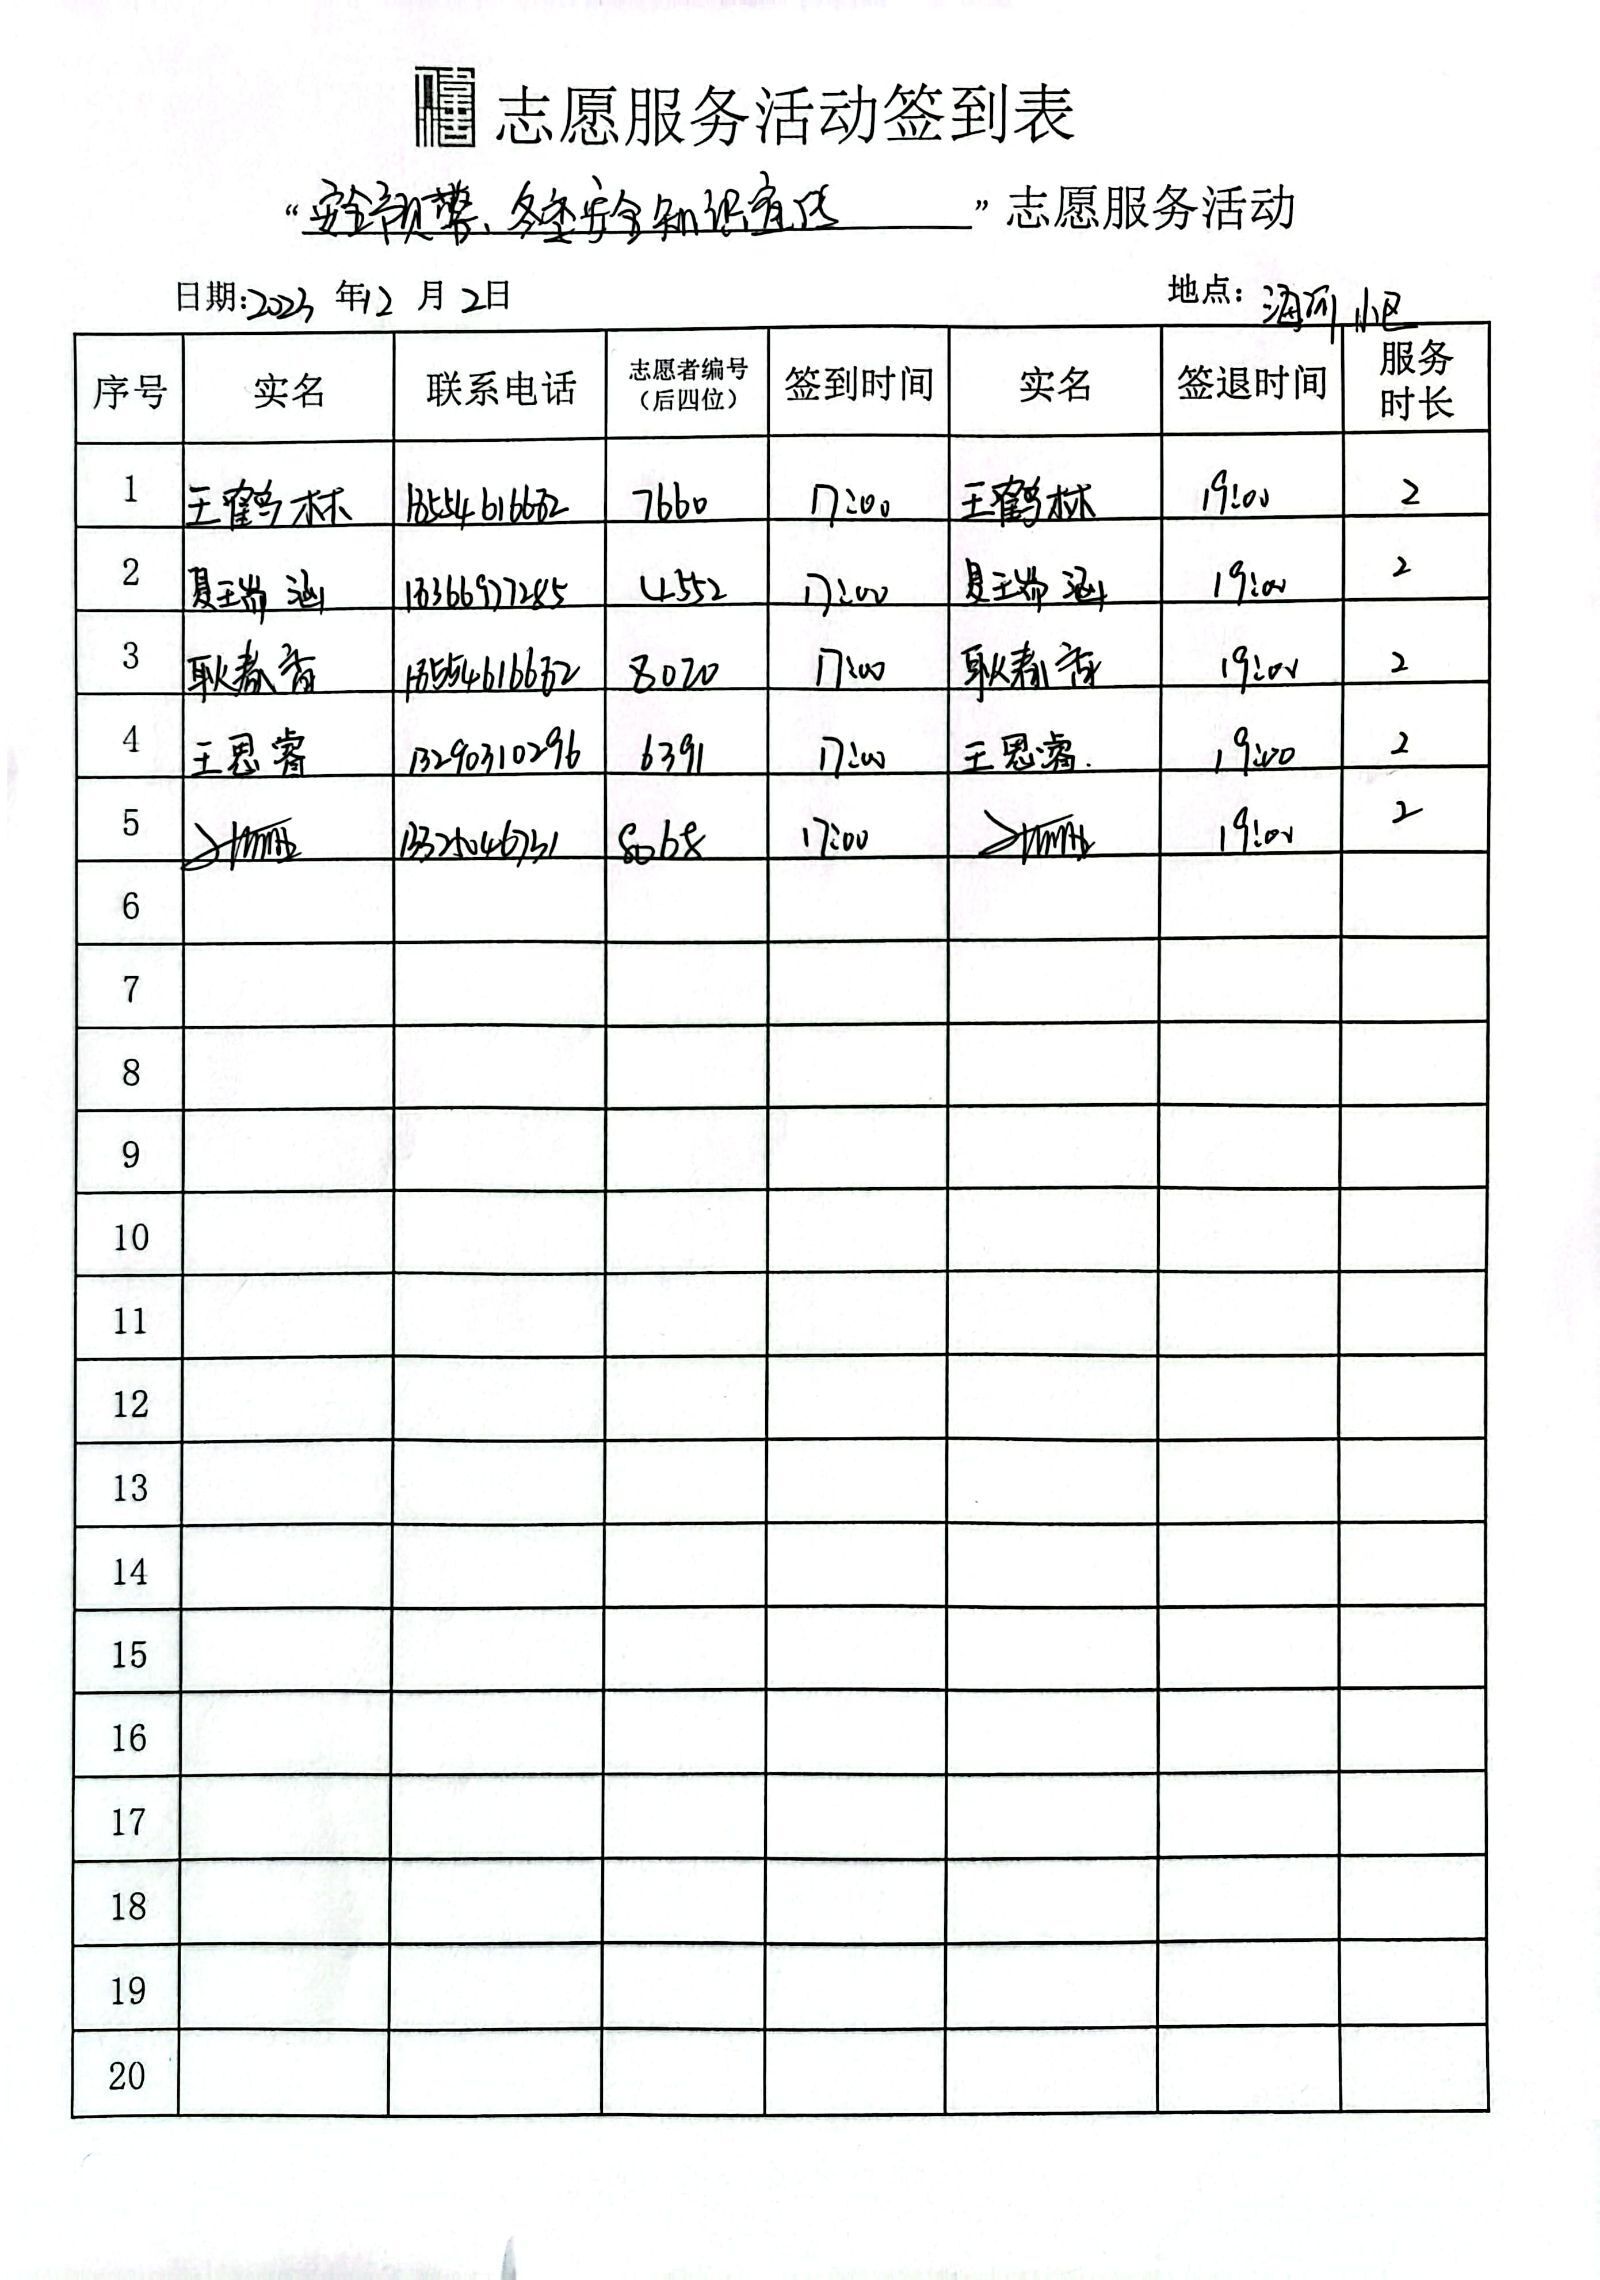 志愿服务活动签到表
“安全预警、冬季安全知识宣传”志愿服务活动
日期:2023年12月2日 地点:海河小区
序号 实名 联系电话 志愿者编号（后四位） 签到时间 实名 签退时间 服务时长
1 王鹤林 7660 17:00 王鹤林 19:00 2
2 夏瑞涵 4552 17:00 夏瑞涵 19:00 2
3 耿春香 8020 17:00 耿春香 19:00 2
4 王思睿 13290310296 6391 17:00 王思睿. 19:00 2
5 8068 17:00 19:00 2
6
7
8
9
10
11
12
13
14
15
16
17
18
19
20